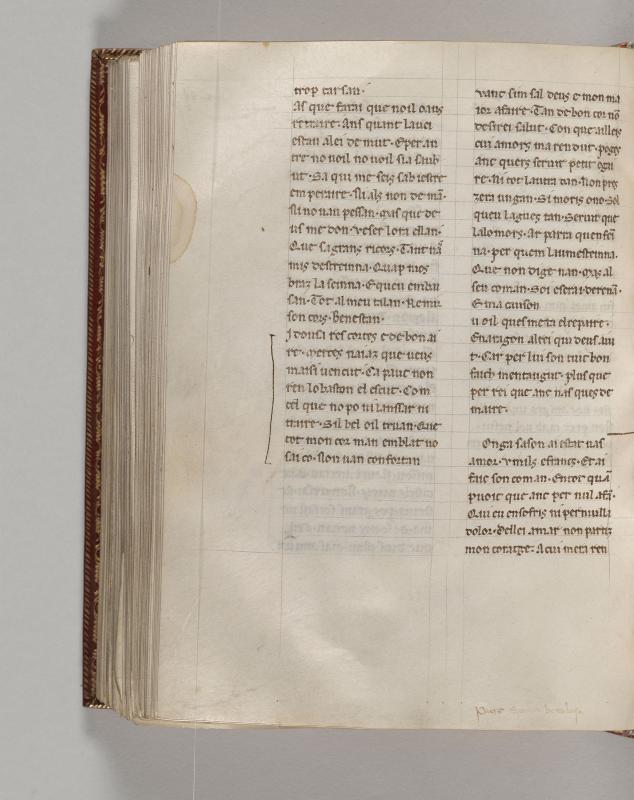 trop tarsau·
As que farai que noil oaus
retraire· Ans quant lauei
estau alei de mut· Eper au
tre no uoil no uoil sia saub
ut· Sa qui me
em peraire· Sil als non de mā·
Si no uau pessan· mas que de
us me don· veser lora ellan·
Que sa grans ricors· Tant nā
mis destreinna·
braz la seinna· Equeu embra
san· Tot al meu talan· Remir
son cors· benestan·
I dousa res cortes e de bon ai
re· merces naiaz que ueus
maisi uencut· Ca paue non
ren lo baston el escut· Com
cel que no po ni lanssar ni
traire· Sil bel oil truan· Que
tot mon cor man emblat no
sai co· Non uan confortan
vanc sim sal deus e mon ma
ior afaire· Tan de bon cor nō
desirei salut· Con que
cui amors ma rendut· poges
anc quers seruir petit ogai
re· Ni tot laura dan· Non pres
zera un gan· Si moris ono· Sol
queu lagues tan· Seruit que
lalomors· Ar parra quen fei
na· per quem laun estreinna·
Que non dige nan· mas al
seu coman· Soi
E ma cuison
u oil ques me ra elrepaire·
En aragon al rei qui deus aiu
t· Car per lui son tuit bon
faich mentaugut· plus que
per rei que anc nas ques de
maire·
Onga sason ai estat uas
amor· vmils efrancs· Et ai
faic son coman· Entot quā
puoit que anc per nul afā·
Qui eu ensofris ni per nulla
dolor· Dellei amar non partiz
mon coratge· A cui mera ren